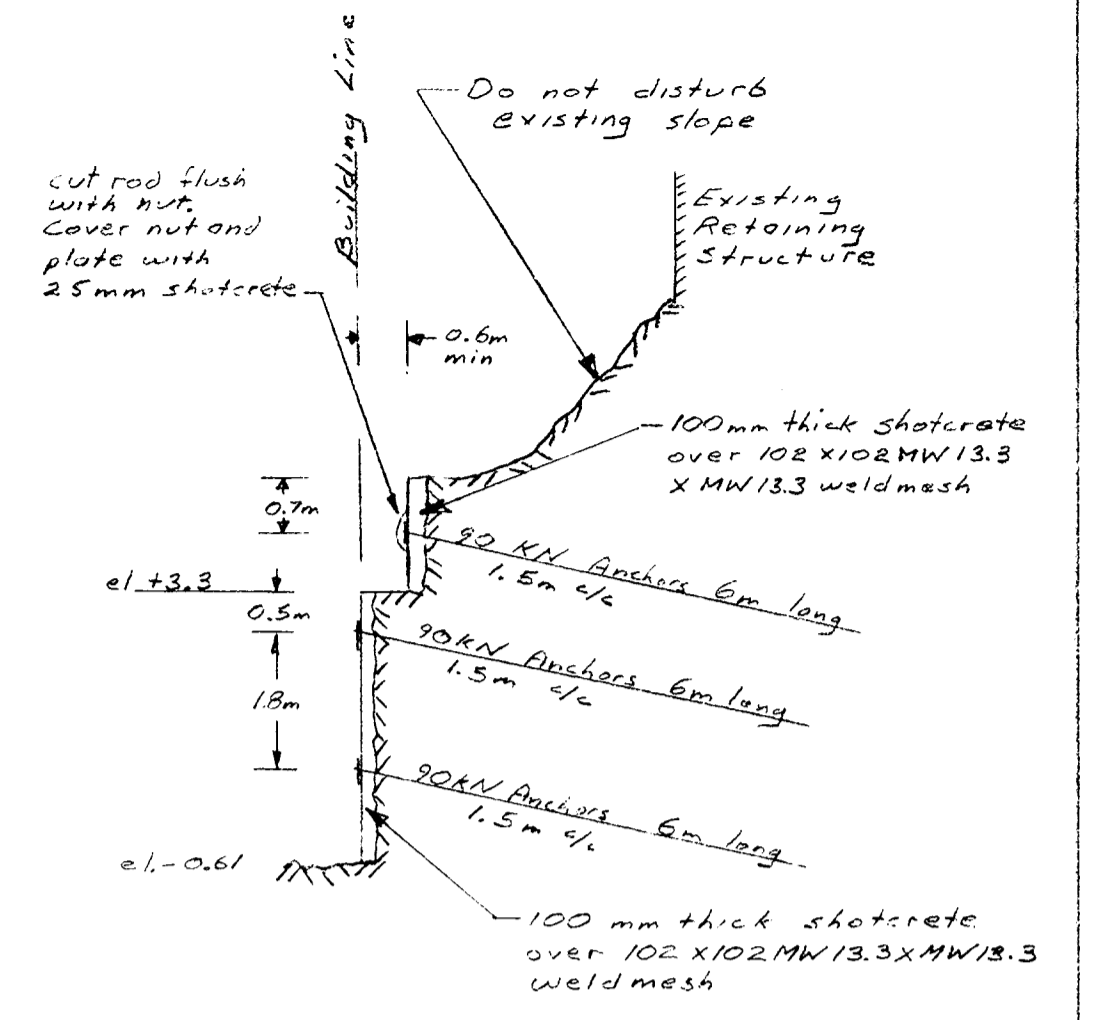 Building Line
Do not disturb
existing slope
cut rod flush
with nut.
Cover nut and
plate with
25mm shotcrete
Existing
Retaining
Structure
0.6m
min
100mm thick shotcrete
over 102 x 102 MW 13.3
x MW 13.3 weldmesh
0.7m
90 KN Anchors 6m long
1.5m c/c
el. +3.3
0.5m
90kN Anchors 6m long
1.5m c/c
1.8m
90kN Anchors 6m long
1.5m c/c
el. -0.61
100 mm thick shotcrete
over 102 x 102 MW 13.3 x MW 13.3
weldmesh